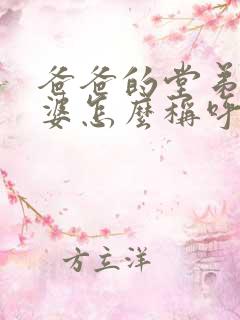 爸爸的堂弟
婆怎麼稱呼
方立洋